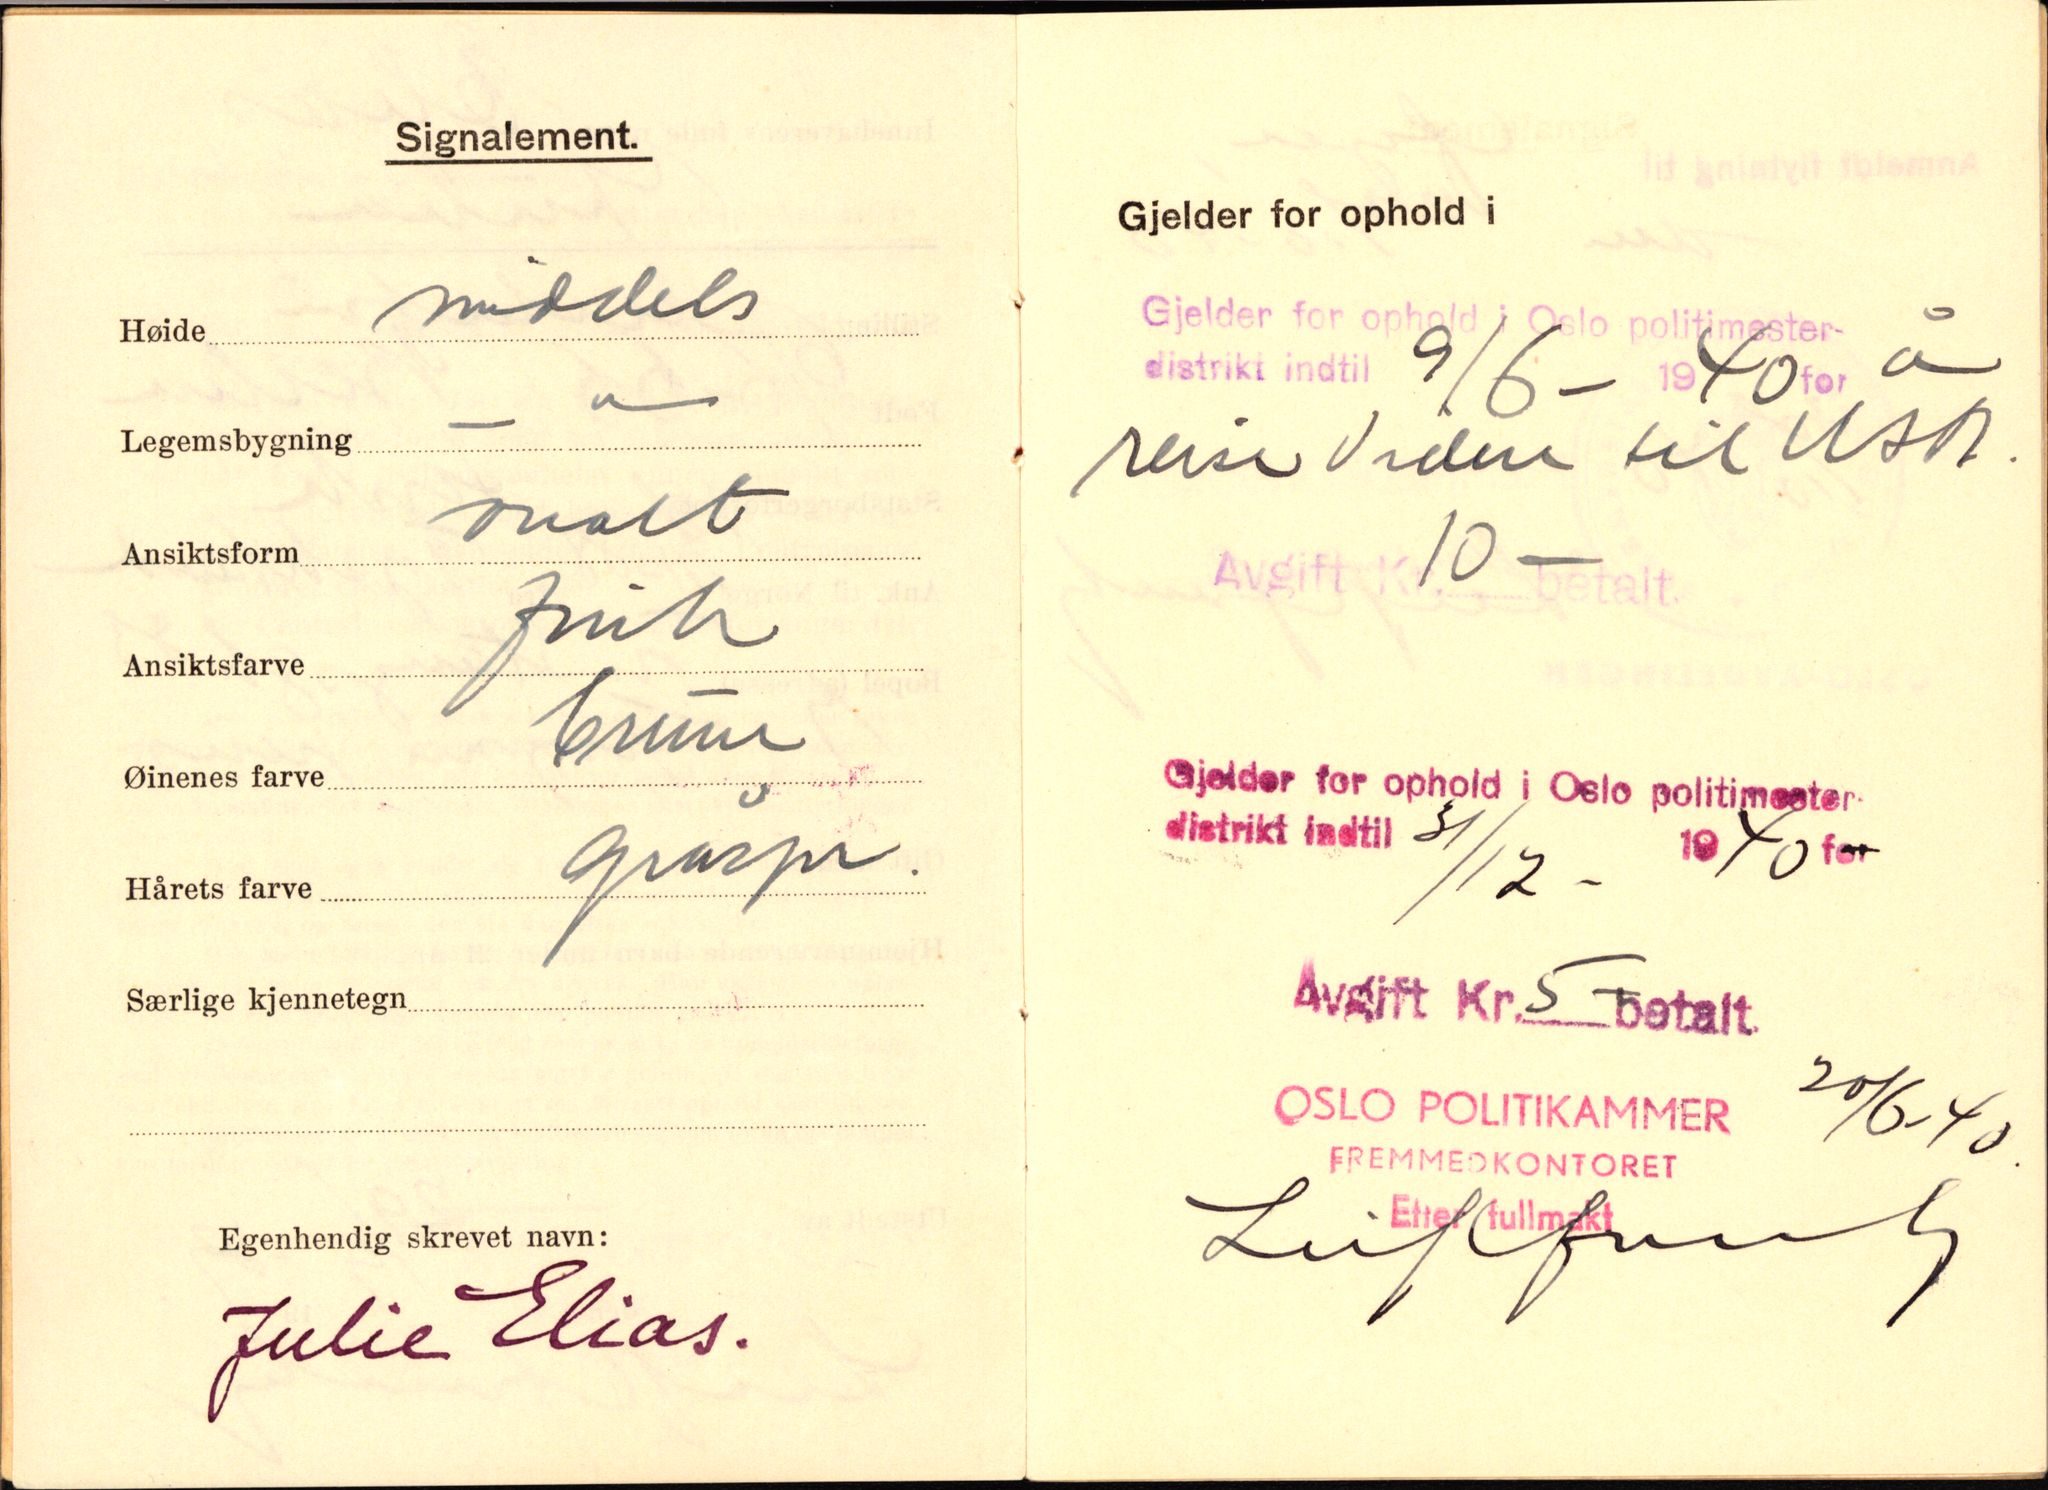 Signalement.
Høide middels
Legemsbygning — " —
Ansiktsform ovalt
Ansiktsfarve frisk
Øinenes farve brune
Hårets farve gråspr.
Særlige kjennetegn
Egenhendig skrevet navn:
Julie Elias.
Gjelder for ophold i
Gjelder for ophold i Oslo politimester-
distrikt indtil 9/6- 1940 for å
reise videre til USA.
Avgift Kr. 10 — betalt.
Gjelder for ophold i Oslo politimester-
distrikt indtil 31/12- 1940 for
Avgift Kr. 5 — betalt.
OSLO POLITIKAMMER 20/6-40.
FREMMEDKONTORET
Etter fullmakt
Leif